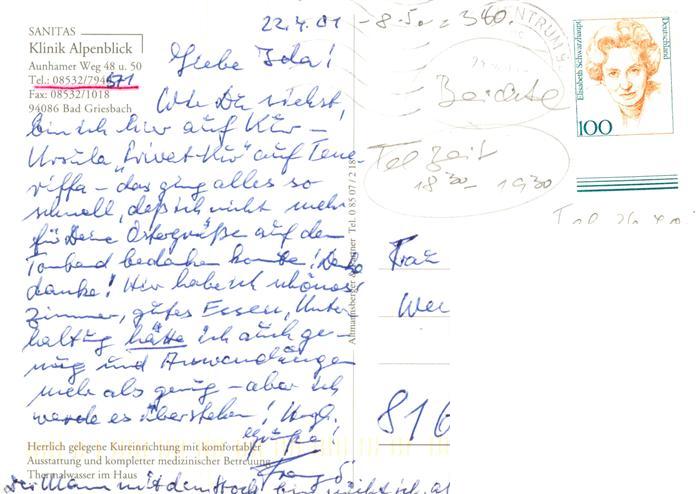 SANITAS
Klinik Alpenblick
Aunhamer Weg 48 u. 50
Tel.: 08532/794571
Fax: 08532/1018
94086 Bad Griesbach
22.4.01 - 8.5.
Liebe Ida!
Wie Du siehst,
bin ich hier auf Kur –
Ursula „Privat-Kur" auf Tene
riffa – das ging alles so
schnell, daß ich nicht mehr
für Deine Ostergrüße auf dem
Tonband bedanken konnte!
danke! Hier habe ich schönes
Zimmer, gutes Essen, Unter
haltung hätte ich auch ge-
nug und Anwendungen
mehr als genug – aber ich
werde es überstehen! Herzl.
Grüße!
Herrlich gelegene Kureinrichtung mit komfortabler
Ausstattung und kompletter medizinischer Betreuung
Thermalwasser im Haus
Der Mann mit dem Stock bin
Tel Zeit
18 30 – 19 30
ENTRUM
Elisabeth Schwarzhaupt
Deutschland
100
Tel. 0 85 07 / 2 18
Frau
We
816